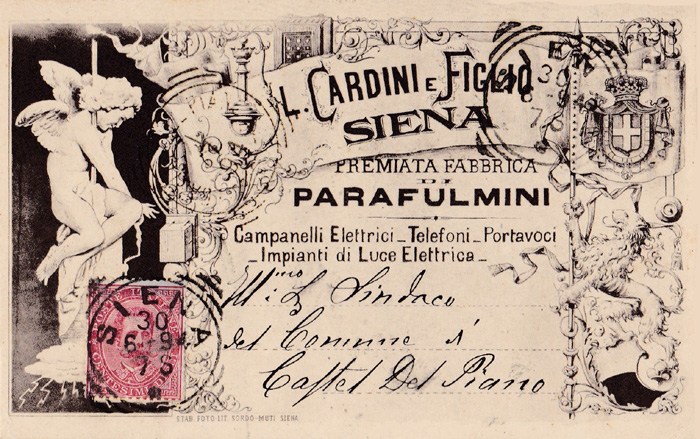 L. CARDINI E FIGLIO
SIENA
PREMIATA FABBRICA
DI
PARAFULMINI
Campanelli Elettrici - Telefoni - Portavoci
- Impianti di Luce Elettrica -
Sindaco
del Comune di
Castel Del Piano
SIENA
30
STAB. FOTO-LIT. SORDO-MUTI SIENA